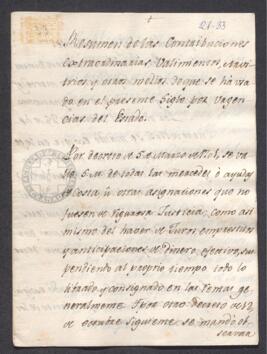 21-33
Resumen de las Contribuciones
extraordinarias Valimientos, Arvi-
trios, y otros medios de que se ha usa
do en el presente Siglo por vrgen
cias del Erario.
Por decreto de 5 de Marzo de se va
lio S.M. de todas las mercedes, ayudas
de Costa, ù otras asignaciones que no
fuesen de rigurosa Justicia; como asi
mismo del haver de Juros emprestitos
y anticipaciones de dinero efectivo, sus
pendiendo al propio tiempo todo lo
librado y consignado en las Rentas ge
neralmente. Y por otro decreto de
de octubre siguiente se mandó ob
servar